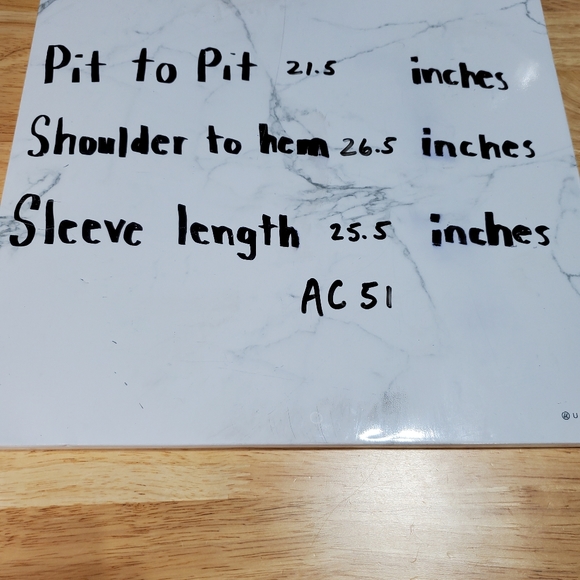 Pit to Pit 21.5 inches
Shoulder to hem 26.5 inches
Sleeve length 25.5 inches
AC 51
® U